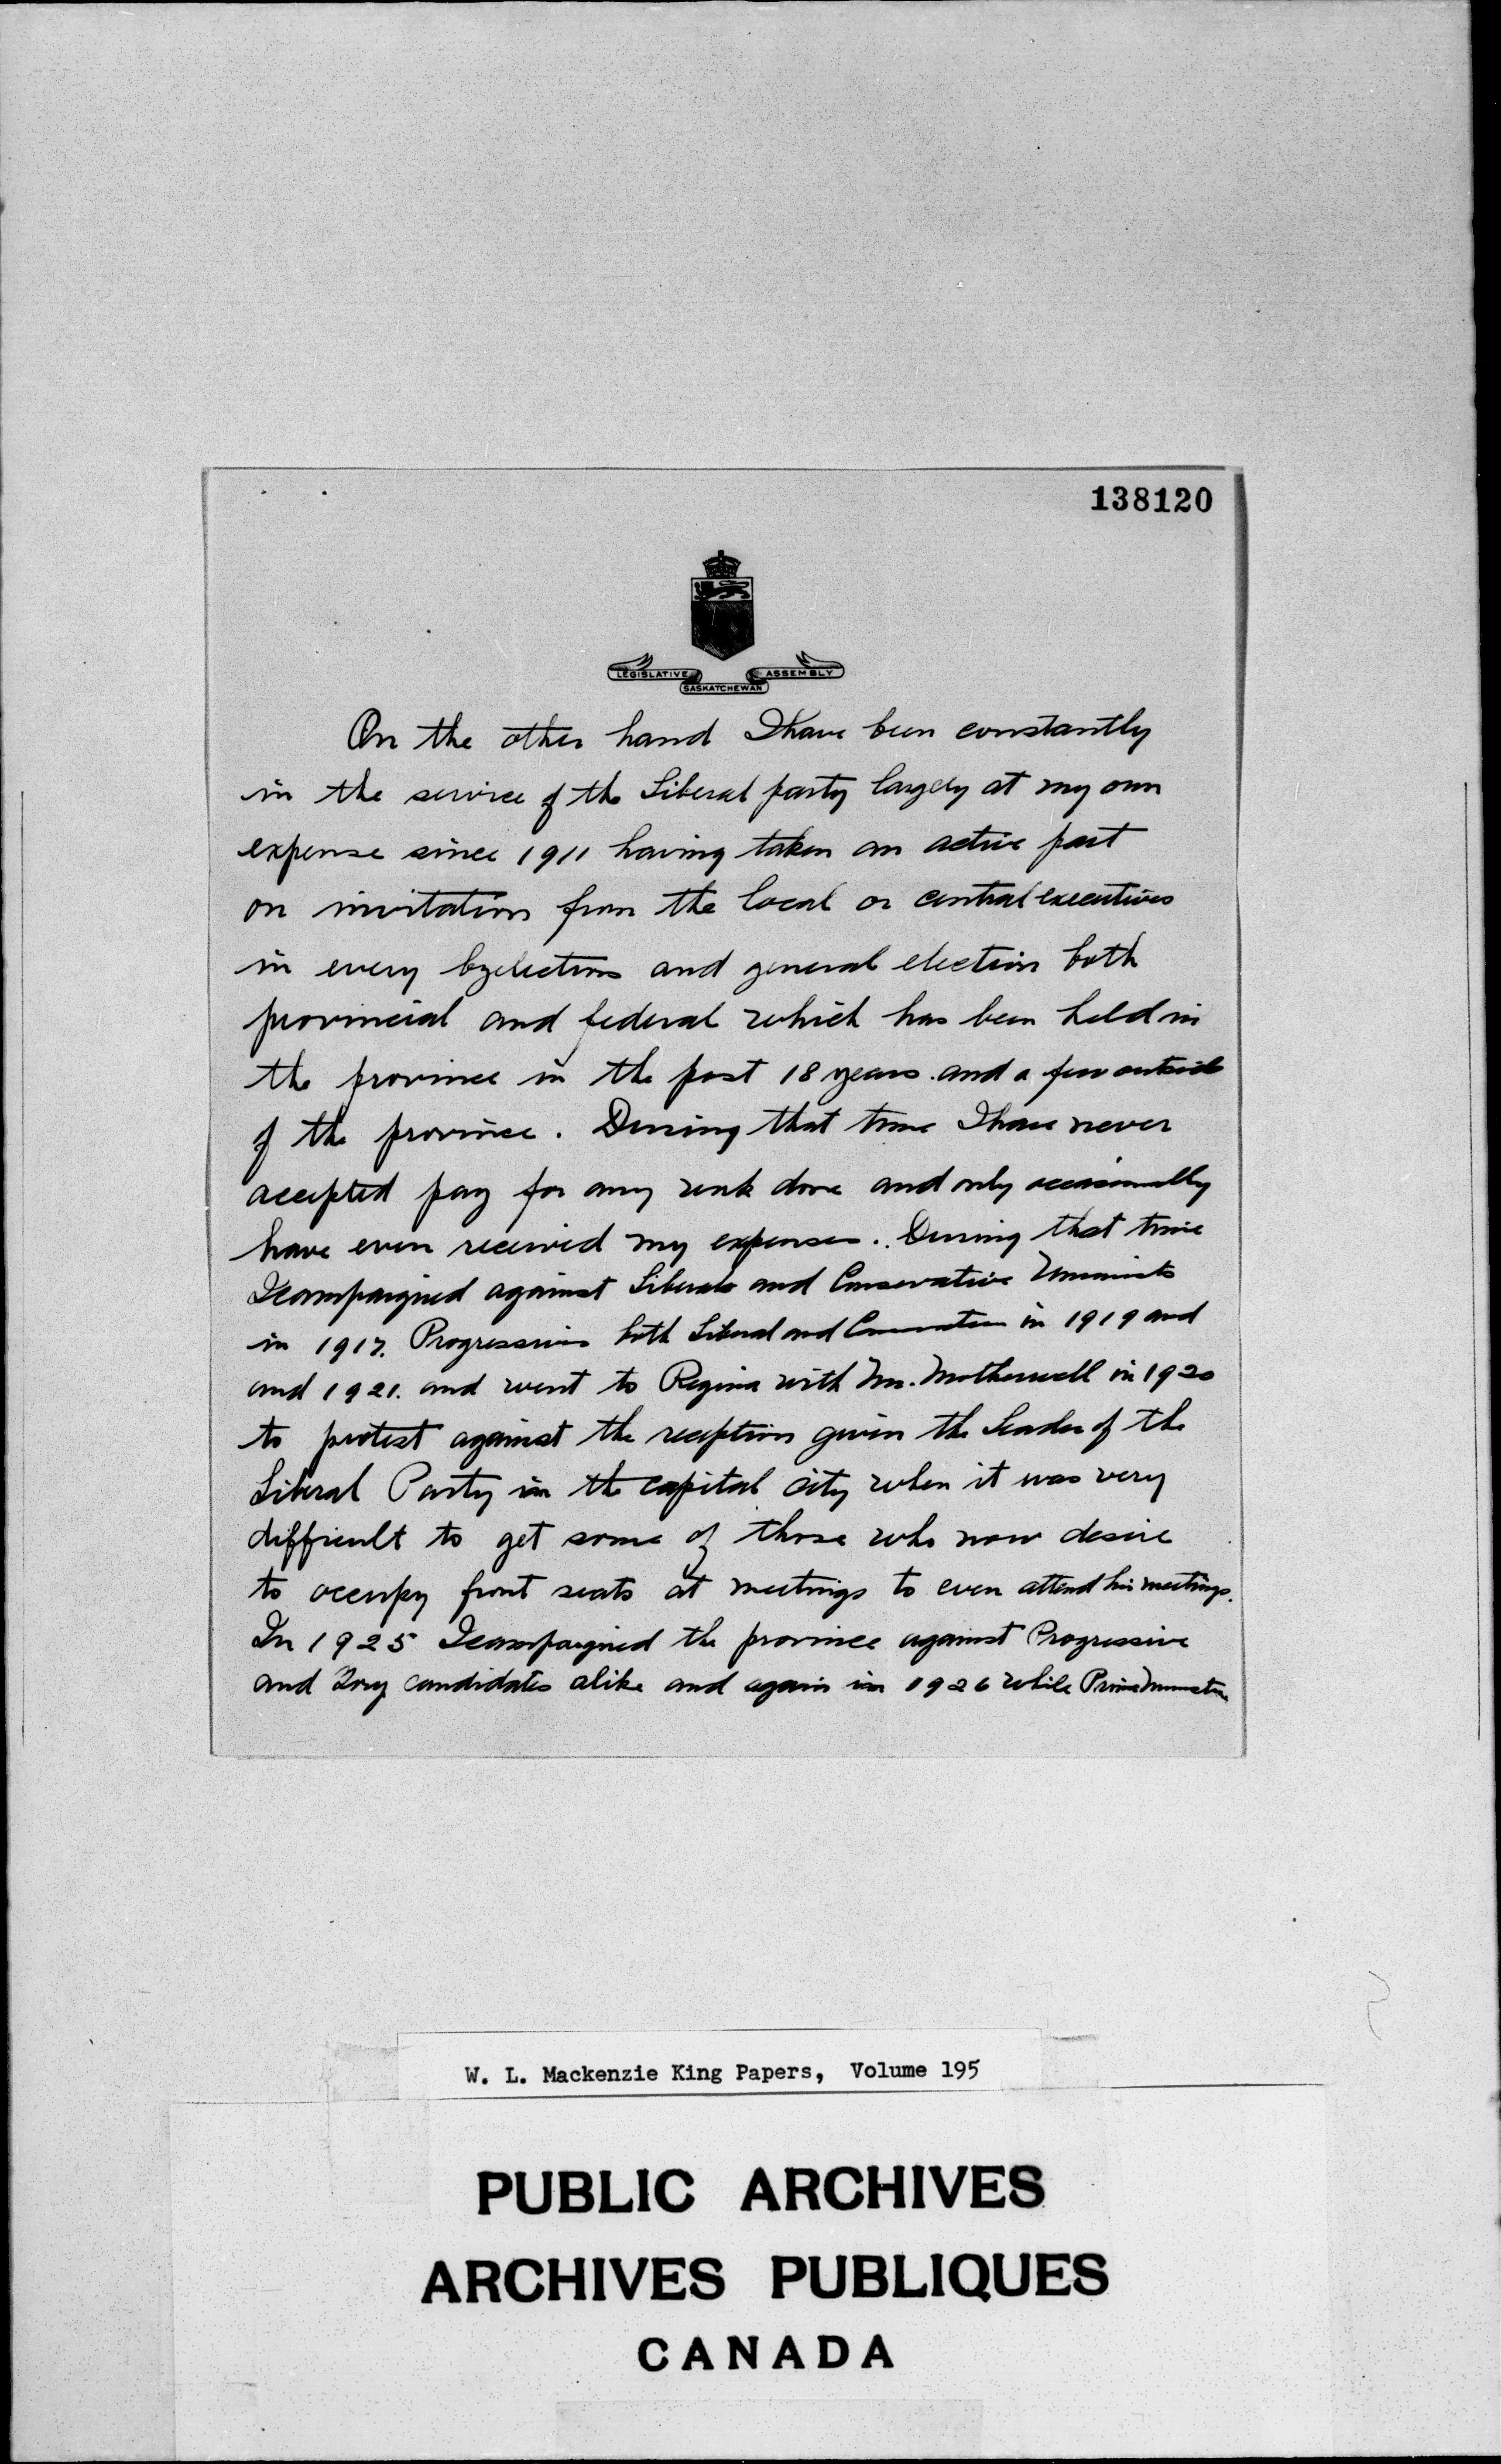 138120
LEGISLATIVE ASSEMBLY
SASKATCHEWAN
On the other hand I have been constantly
in the service of the Liberal party largely at my own
expense since 1911 having taken an active part
on invitation from the local or central executives
in every byelection and general election both
provincial and federal which has been held in
the province in the past 18 years and a few outside
of the province. During that time I have never
accepted pay for any work done and only occasionally
have even received my expenses. During that time
I campaigned against Liberals and Conservative Unionists
in 1917. Progressives both Liberal and Conservative in 1919 and
and 1921. and went to Regina with Mr. Motherwell in 1920
to protest against the reception given the Leader of the
Liberal Party in the capital city when it was very
difficult to get some of those who now desire
to occupy front seats at meetings to even attend his meetings.
In 1925 I campaigned the province against Progressive
and Tory candidates alike and again in 1926 while Prime Minister
W. L. Mackenzie King Papers, Volume 195
PUBLIC ARCHIVES
ARCHIVES PUBLIQUES
CANADA